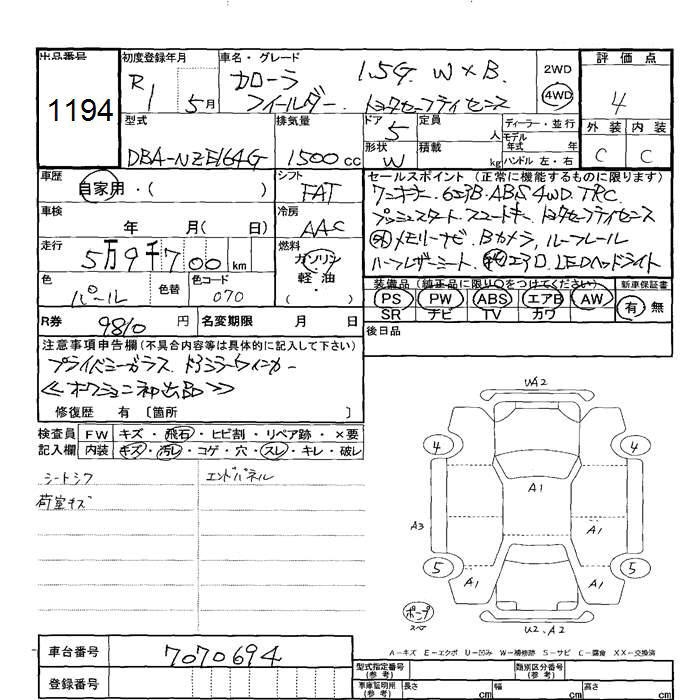 出品番号 初度登録年月 車名・グレード 2WD 評価点
1194 R1 5月 カローラ 1.5G. W×B. 4WD 4
フィールダー. トヨタセーフティセンス
型式 排気量 ドア 定員 ディーラー・並行 外装 内装
DBA-NZE164G 1500cc 5 人 モデル年式 年式 C C
形状 W 積載 kg ハンドル 左・右
車歴 シフト セールスポイント (正常に機能するものに限ります)
自家用・( ) FAT ワンオーナー. 6エアB. ABS 4WD. TRC.
車検 冷房 プッシュスタート. スマートキー. トヨタセーフティセンス
年 月( 日) AAC 外メモリーナビ. Bカメラ, ルーフレール
走行 燃料 ハーフレザーシート. 純エアロ. LEDヘッドライト
5万9千700km ガソリン・軽油・( )
色 色替 色コード 装備品 (純正品に限り○をつけてください) 新車保証書
パール 070 PS PW ABS エアB AW 有 無
SR ナビ TV カワ
R券 9810円 名変期限 月 日 後日品
注意事項申告欄(不具合内容等は具体的に記入して下さい)
プライバシーガラス. ドアミラーウィンカー
修復歴 有 〔箇所 〕
検査員 FW キズ・飛石・ヒビ割・リペア跡・×要
記入欄 内装 キズ・汚レ・コゲ・穴・スレ・キレ・破レ
シートシワ エンドパネル
荷室キズ
UA2
4 4
A1
A3 A1
5 5
A1 A1
U2.A2
A-キズ E-エクボ U-凹み W-補修跡 S-サビ C-腐食 XX-交換済
車台番号 7070694
登録番号
型式指定番号(参考) 類別区分番号(参考)
車庫証明用(参考) 長さ cm 幅 cm 高さ cm